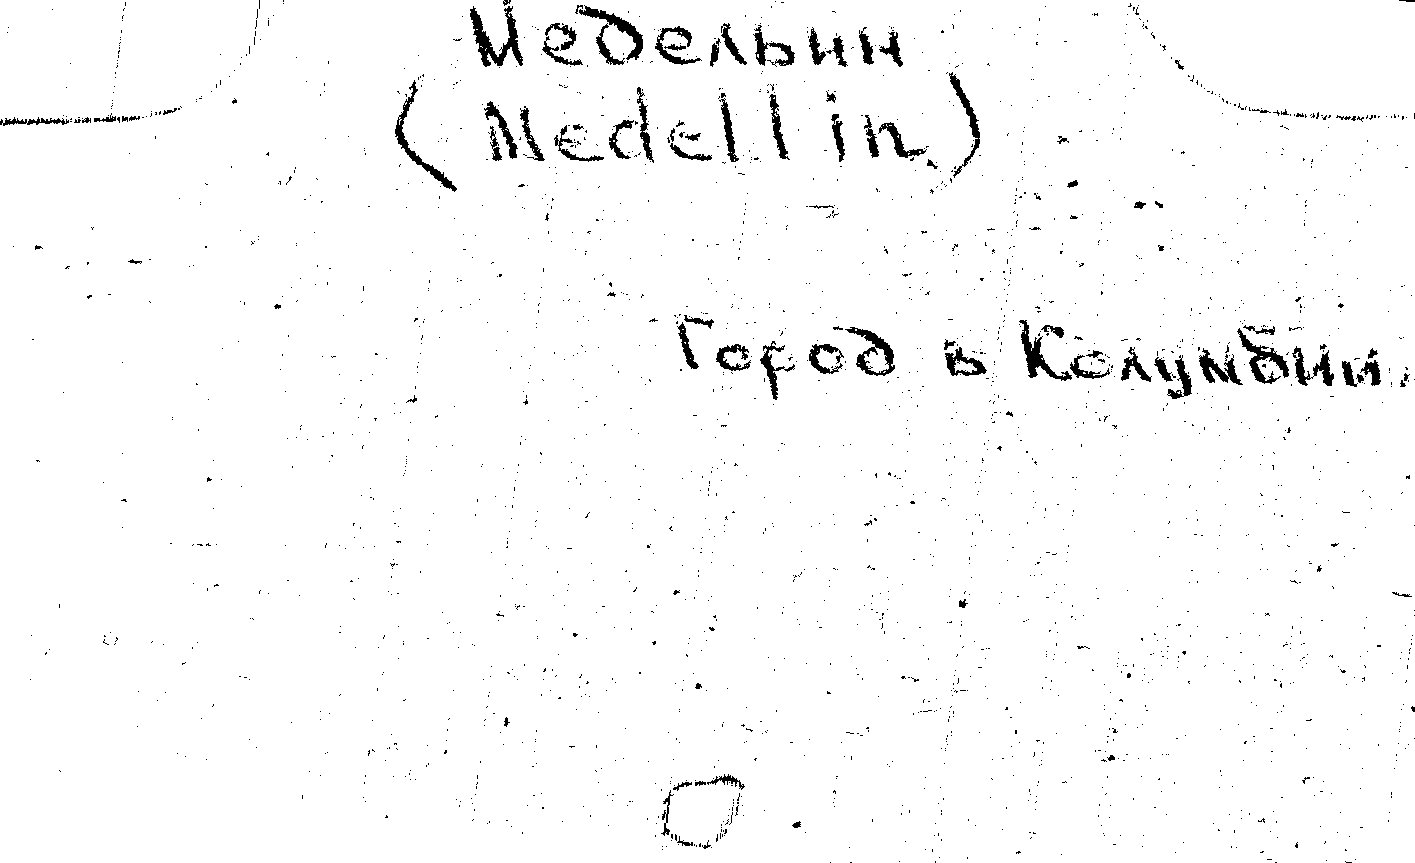 Медельин
(Medellin)
Город в Колумбии.